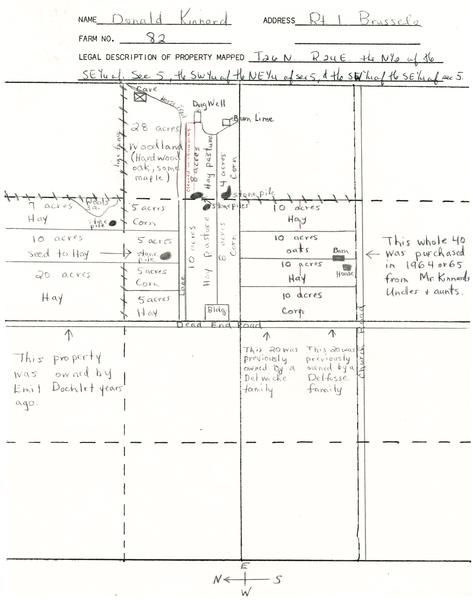 NAME Donald Kinnard ADDRESS Rt 1 Brussels
FARM NO. 82
LEGAL DESCRIPTION OF PROPERTY MAPPED T26N R24E the N½ of the
SE¼ of Sec 5, the SW¼ of the NE¼ of sec 5, & the SW¼ of the SE¼ of sec 5.
Cave
Dug Well
Barn Lime
28 acres
Woodland
(Hardwood
oak, some
maple)
8 acres
Hay pasture
4 acres
Corn
stone pile
stone piles
7 acres
Hay
Woods
5a.
stone
pile
5 acres
Corn
10 acres
Hay
10 acres
seed to Hay
5 acres
stone
pile
10 acres
Hay Pasture
8 acres
Corn
10 acres
oats
Barn
House
20 acres
Hay
5 acres
Corn
Lane
10 acres
Hay
5 acres
Hay
Bldg
10 acres
Corn
This whole 40
was purchased
in 1964 or 65
from Mr Kinnards
Uncles + aunts.
Dead End Road
Church Road
This property
was owned by
Emil Dochlet years
ago.
This 20 was
previously
owned by a
Delwiche
family
This 20 was
previously
owned by a
Delfosse
family
E
N S
W